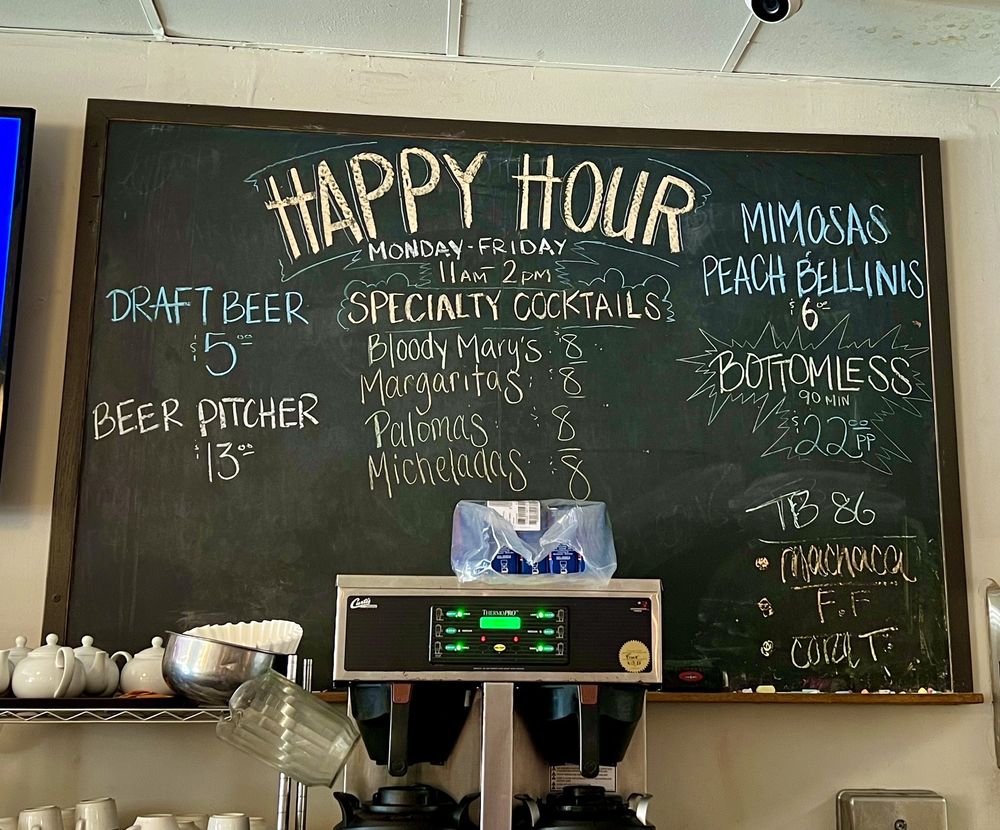 HAPPY HOUR
MONDAY-FRIDAY
11AM 2PM
DRAFT BEER
$5.00
BEER PITCHER
$13.00
SPECIALTY COCKTAILS
Bloody Mary's $8
Margaritas $8
Palomas $8
Micheladas $8
MIMOSAS
PEACH BELLINIS
$6.00
BOTTOMLESS
90 MIN
$22.00 PP
TB 86
machaca
F.F
coral T.
Curtis
THERMOPRO